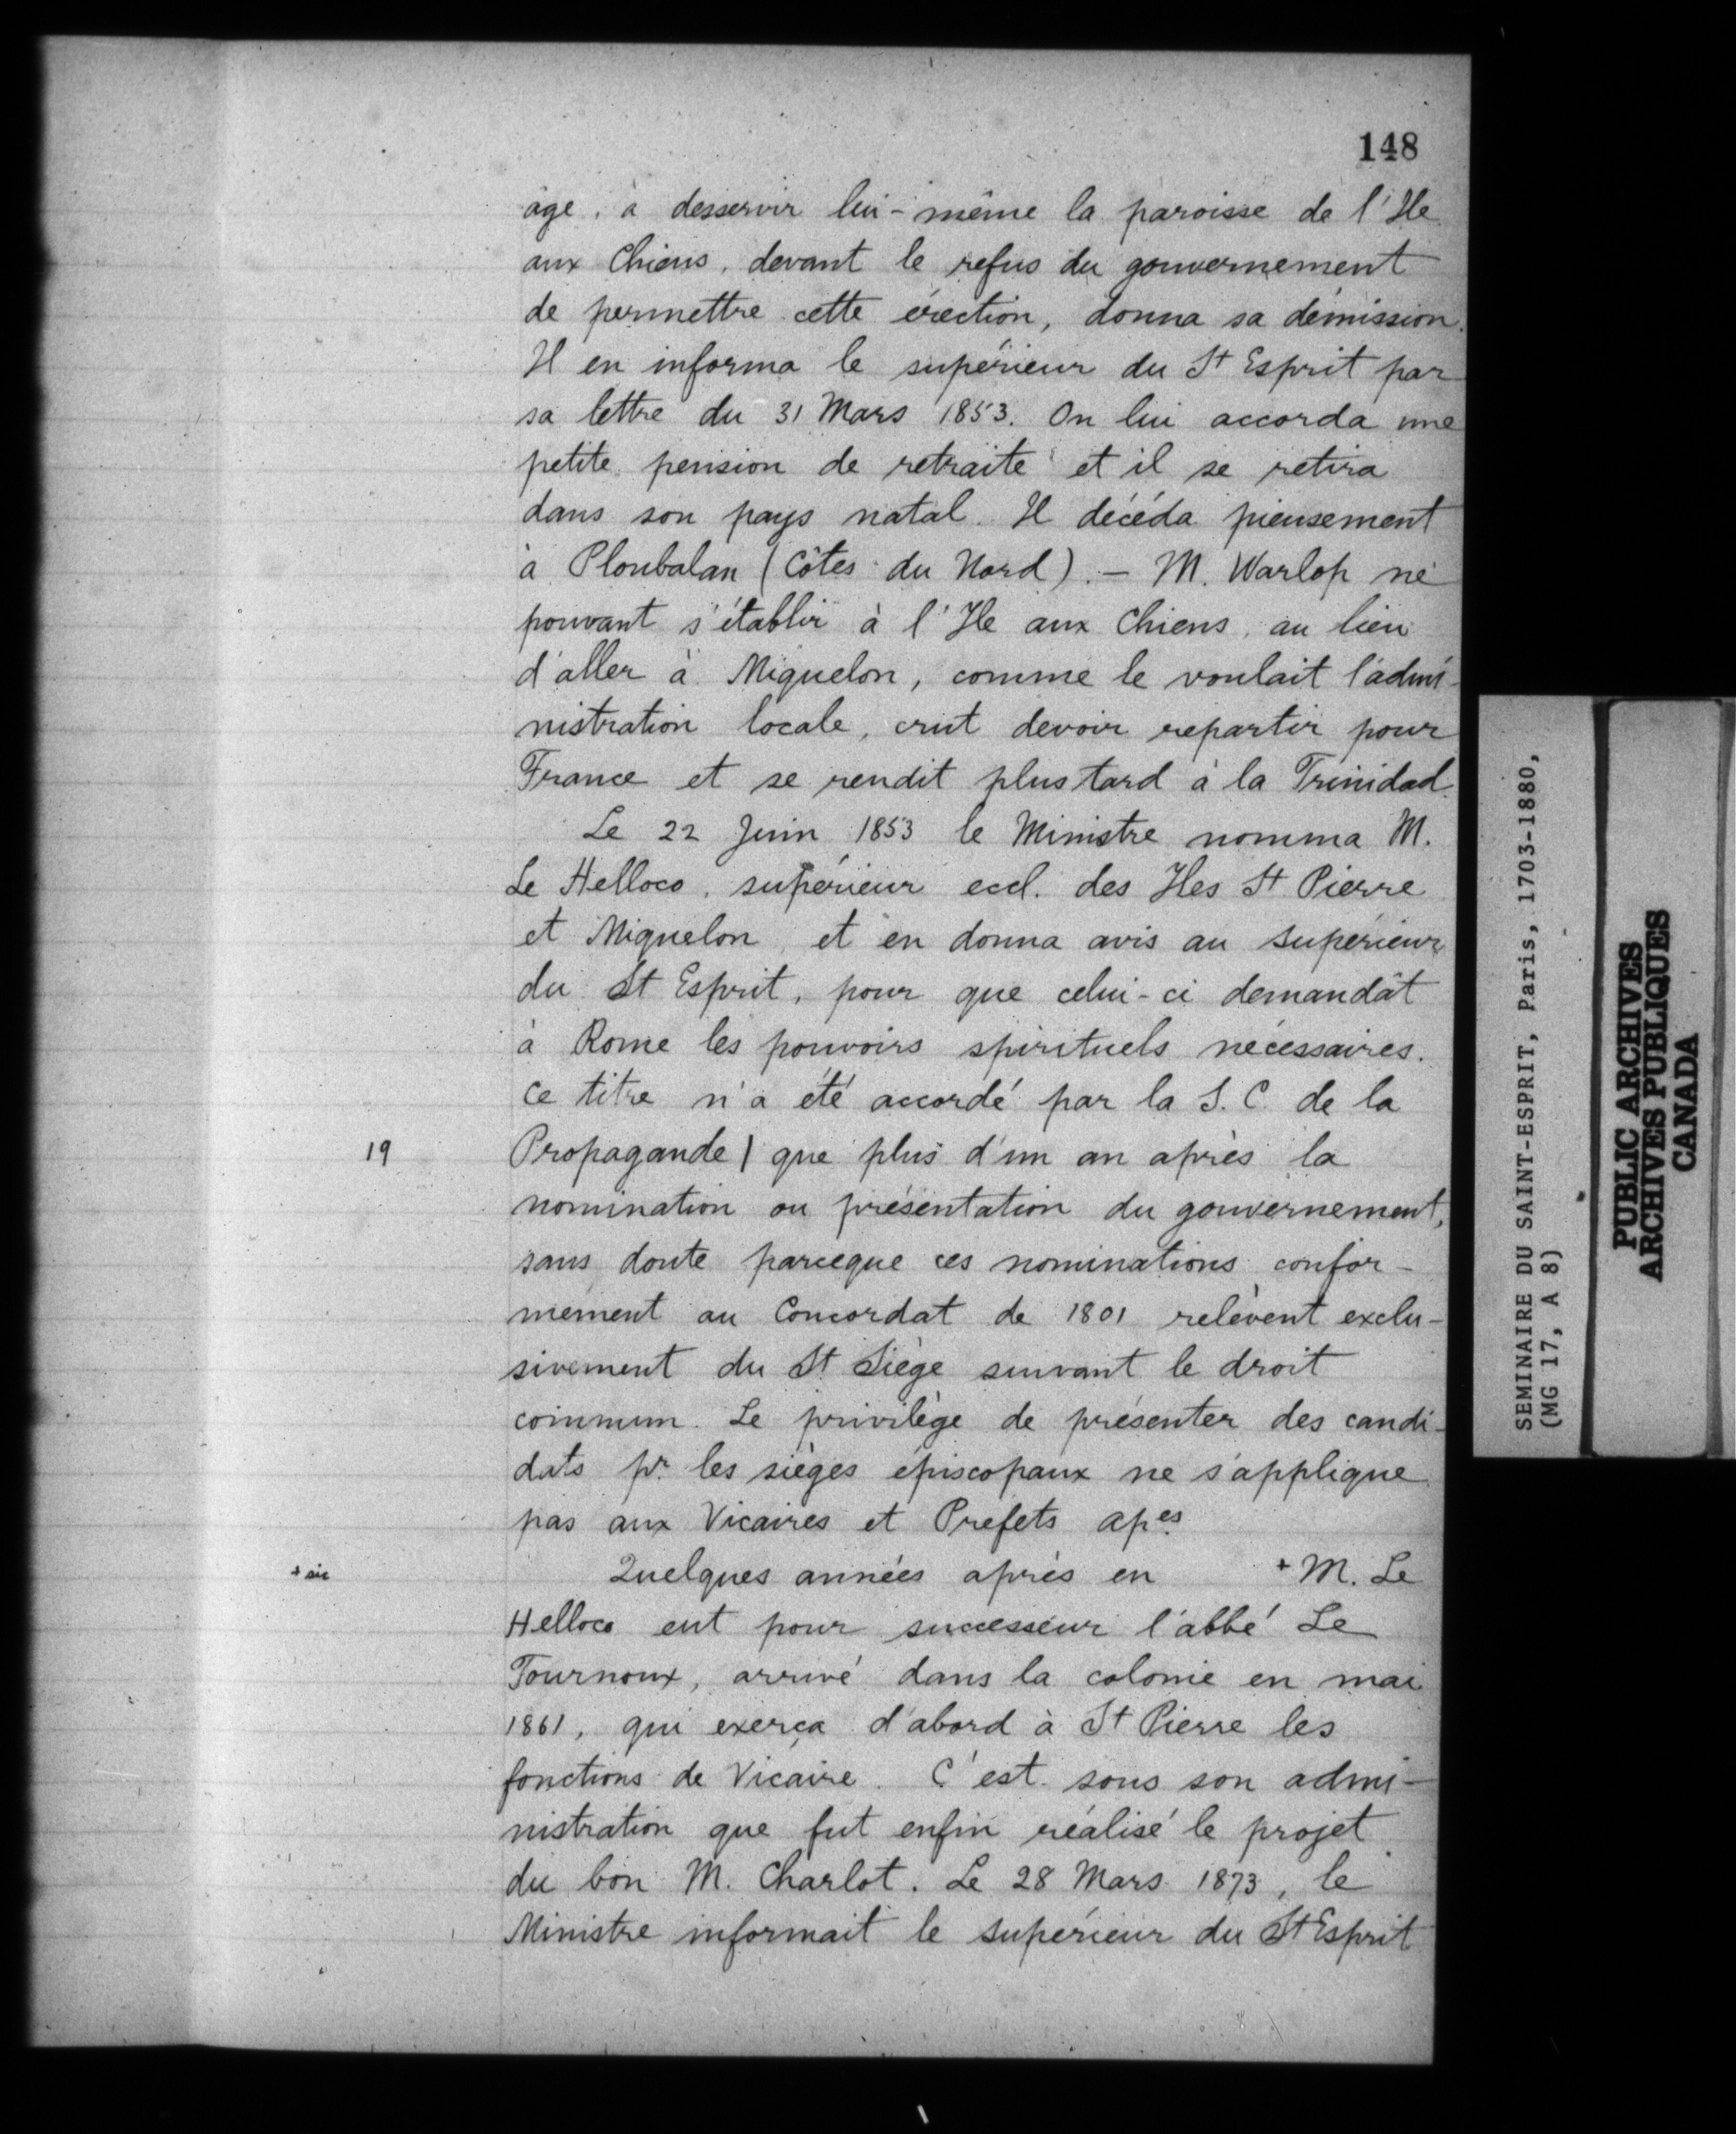 148
âge, à desservir lui-même la paroisse de l'Ile
aux Chiens, devant le refus du gouvernement
de permettre cette érection, donna sa démission.
Il en informa le supérieur du St Esprit par
sa lettre du 31 Mars 1853. On lui accorda une
petite pension de retraite et il se retira
dans son pays natal. Il décéda pieusement
à Ploubalan (Côtes du Nord). – M. Warlop ne
pouvant s'établir à l'Ile aux Chiens, au lieu
d'aller à Miquelon, comme le voulait l'admi-
nistration locale, crut devoir repartir pour
France et se rendit plus tard à la Trinidad.
Le 22 Juin 1853 le Ministre nomma M.
Le Helloco, supérieur eccl. des Iles St Pierre
et Miquelon, et en donna avis au supérieur
du St Esprit, pour que celui-ci demandât
à Rome les pouvoirs spirituels nécessaires.
Ce titre n'a été accordé par la S. C. de la
19 Propagande | que plus d'un an après la
nomination ou présentation du gouvernement,
sans doute parceque ces nominations confor-
mément au Concordat de 1801 relèvent exclu-
sivement du St Siège suivant le droit
commun. Le privilège de présenter des candi-
dats pr les sièges épiscopaux ne s'applique
pas aux Vicaires et Prefets apes
+ sic Quelques années après en + M. Le
Helloco eut pour successeur l'abbé Le
Tournoux, arrivé dans la colonie en mai
1861, qui exerça d'abord à St Pierre les
fonctions de Vicaire. C'est sous son admi-
nistration que fut enfin réalisé le projet
du bon M. Charlot. Le 28 Mars 1873, le
Ministre informait le supérieur du St Esprit
SEMINAIRE DU SAINT-ESPRIT, Paris, 1703-1880,
(MG 17, A 8)
PUBLIC ARCHIVES
ARCHIVES PUBLIQUES
CANADA